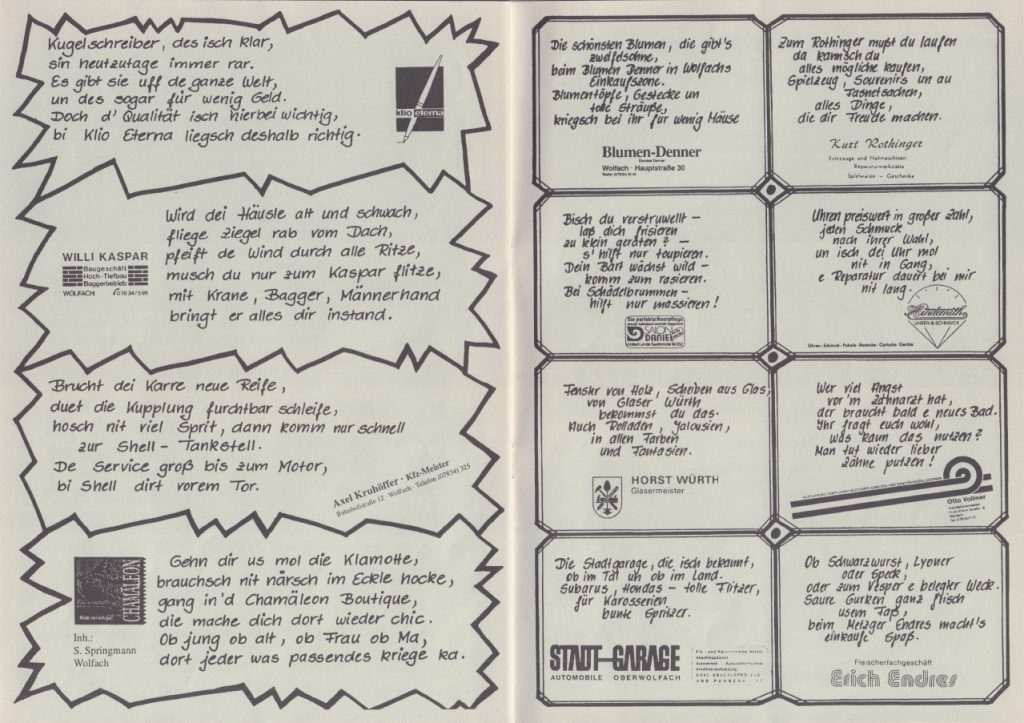 Kugelschreiber, des isch klar,
sin heutzutage immer rar.
Es gibt sie uff de ganze Welt,
un des sogar für wenig Geld.
Doch d' Qualität isch hierbei wichtig,
bi Klio Eterna liegsch deshalb richtig.
klio eterna
Wird dei Häusle alt und schwach,
fliege Ziegel rab vom Dach,
pfeift de Wind durch alle Ritze,
musch du nur zum Kaspar flitze,
mit Krane, Bagger, Männerhand
bringt er alles dir instand.
WILLI KASPAR
Baugeschäft
Hoch-Tiefbau
Baggerbetrieb
WOLFACH 07834/595
Brucht dei Karre neue Reife,
duet die Kupplung furchtbar schleife,
hosch nit viel Sprit, dann komm nur schnell
zur Shell-Tankstell.
De Service groß bis zum Motor,
bi Shell dirt vorem Tor.
Axel Kruhöffer · Kfz-Meister
Bahnhofstraße 12 · Wolfach · Telefon (07834) 325
Gehn dir us mol die Klamotte,
brauchsch nit närsch im Eckle hocke,
gang in'd Chamäleon Boutique,
die mache dich dort wieder chic.
Ob jung ob alt, ob Frau ob Ma,
dort jeder was passendes kriege ka.
CHAMÄLEON
Inh.:
S. Springmann
Wolfach
Die schönsten Blumen, die gibt's
zweifelsohne,
beim Blumen Denner in Wolfachs
Einkaufszone.
Blumentöpfe, Gestecke un
tolle Sträuße,
kriegsch bei ihr für wenig Mäuse
Blumen-Denner
Wolfach · Hauptstraße 30
Zum Rothinger mußt du laufen
da kannsch du
alles mögliche kaufen,
Spielzeug, Souvenirs un au
Fasnetsachen,
alles Dinge,
die dir Freude machen.
Kurt Rothinger
Fahrzeuge und Nähmaschinen
Reparaturwerkstätte
Spielwaren – Geschenke
Bisch du verstruwellt –
laß dich frisieren
zu klein geraten? –
s' hilft nur toupieren.
Dein Bart wächst wild –
komm zum rasieren.
Bei Schädelbrummen –
hilft nur massieren!
SALON
DANIEL
Uhren preiswert in großer Zahl,
jeden Schmuck
nach ihrer Wahl,
un isch dei Uhr mol
nit in Gang,
e Reparatur dauert bei mir
nit lang.
UHREN & SCHMUCK
Uhren · Schmuck · Pokale · Bestecke · Optische Geräte
Fenster von Holz, Scheiben aus Glas,
von Glaser Würth
bekommst du das.
Auch Rolladen, Jalousien,
in allen Farben
und Fantasien.
HORST WÜRTH
Glasermeister
Wer viel Angst
vor'm Zahnarzt hat,
der braucht bald e neues Bad.
Ihr fragt euch wohl,
was kann das nutzen?
Man tut wieder lieber
Zähne putzen!
Otto Vollmer
Die Stadtgarage, die isch bekannt,
ob im Tal uh ob im Land.
Subarus, Hondas – tolle Flitzer,
für Karosserien
bunte Spritzer.
STADT-GARAGE
AUTOMOBILE OBERWOLFACH
Ob Schwarzwurst, Lyoner
oder Speck,
oder zum Vesper e belegter Weck.
Saure Gurken ganz frisch
usem Faß,
beim Metzger Endres macht's
einkaufe Spaß.
Fleischerfachgeschäft
Erich Endres